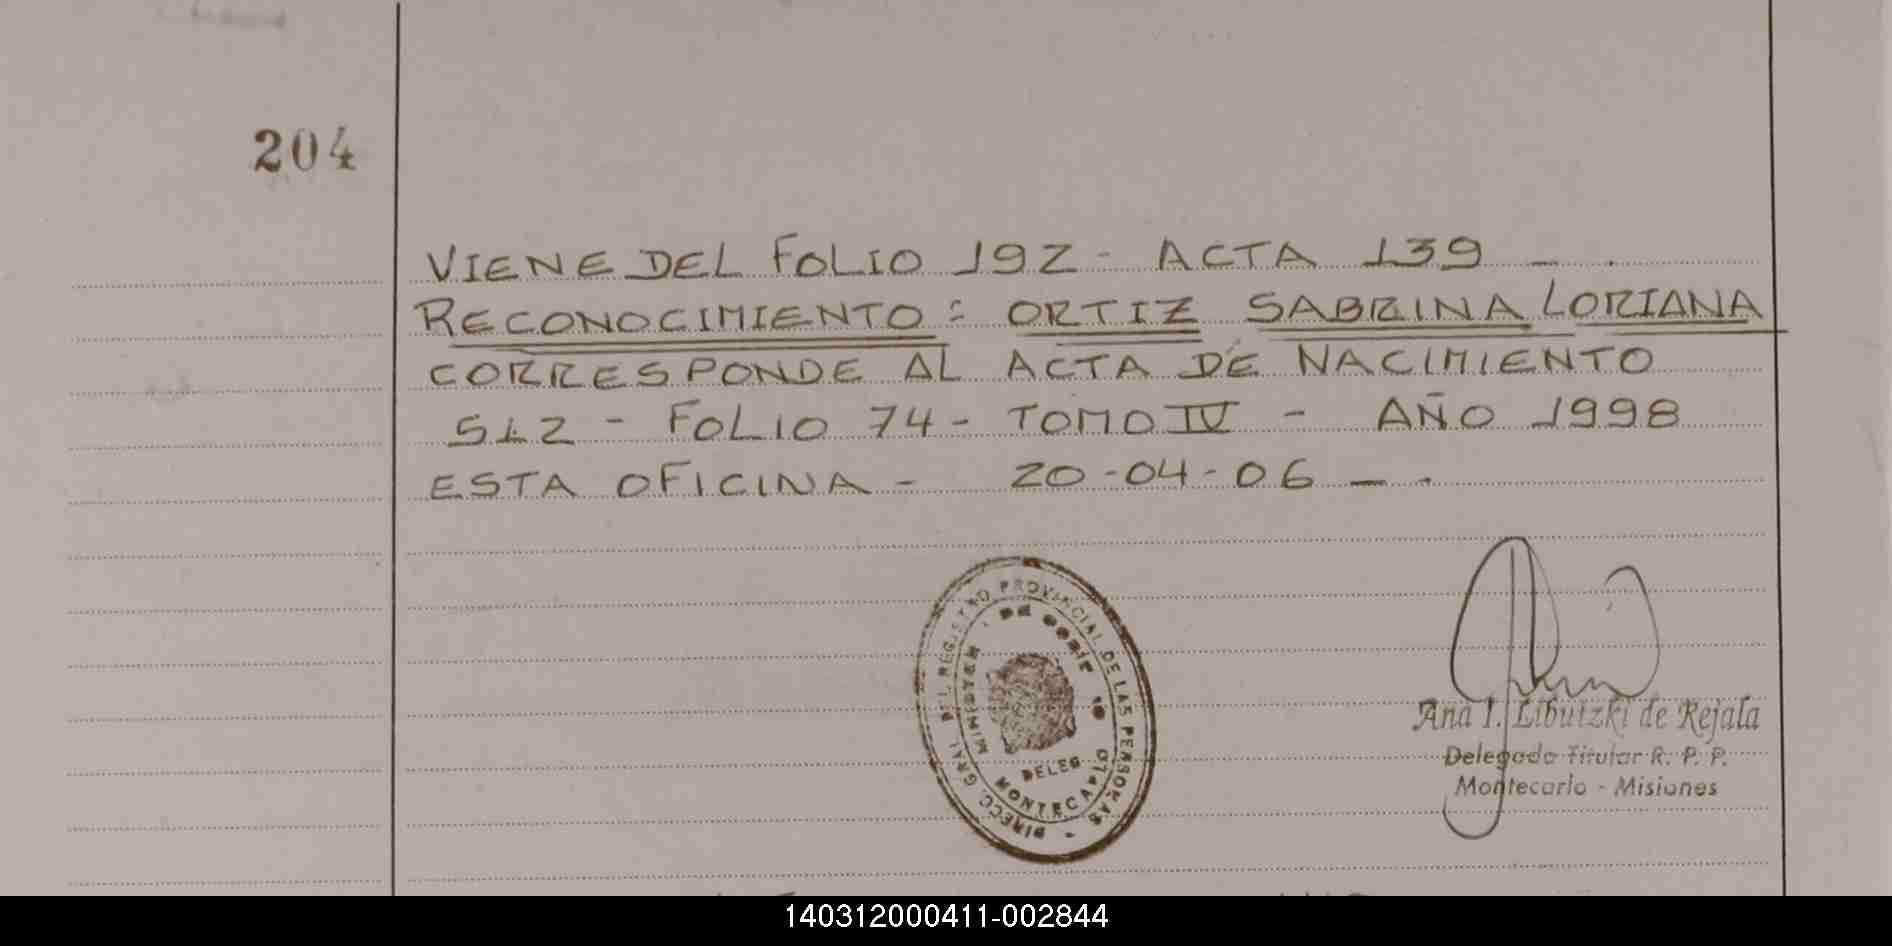 204
VIENE DEL FOLIO 192 - ACTA 139 - .
RECONOCIMIENTO : ORTIZ SABRINA LORIANA
CORRESPONDE AL ACTA DE NACIMIENTO
512 - FOLIO 74 - TOMO IV - AÑO 1998
ESTA OFICINA - 20-04-06 - .
DIRECC. GRAL. DEL REGISTRO PROVINCIAL DE LAS PERSONAS
DELEG.
MONTECARLO
Ana I. Libutzki de Rejala
Delegada Titular R. P. P.
Montecarlo - Misiones
140312000411-002844